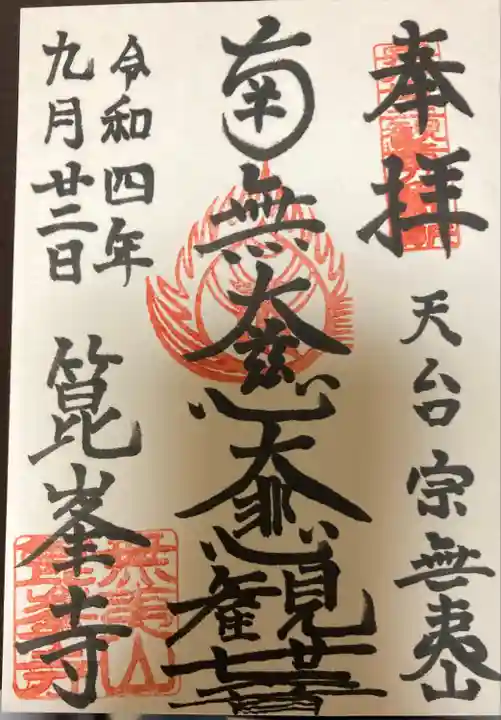 奉拝
天台宗無夷山
南無大慈大悲観世音
令和四年
九月廿二日
箟峯寺